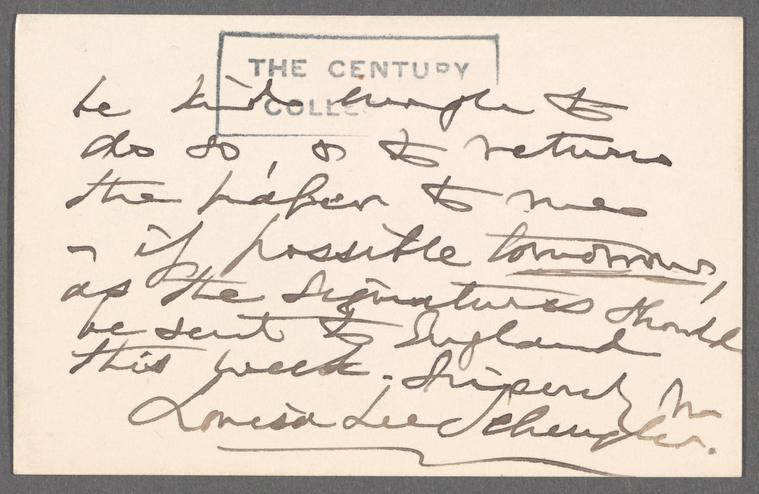 THE CENTURY
COLLEC
be kind enough to
do so, & to return
the paper to me
- if possible tomorrow,
as the signatures should
be sent to England
this week. Sincerely
Louisa Lee Schuyler.